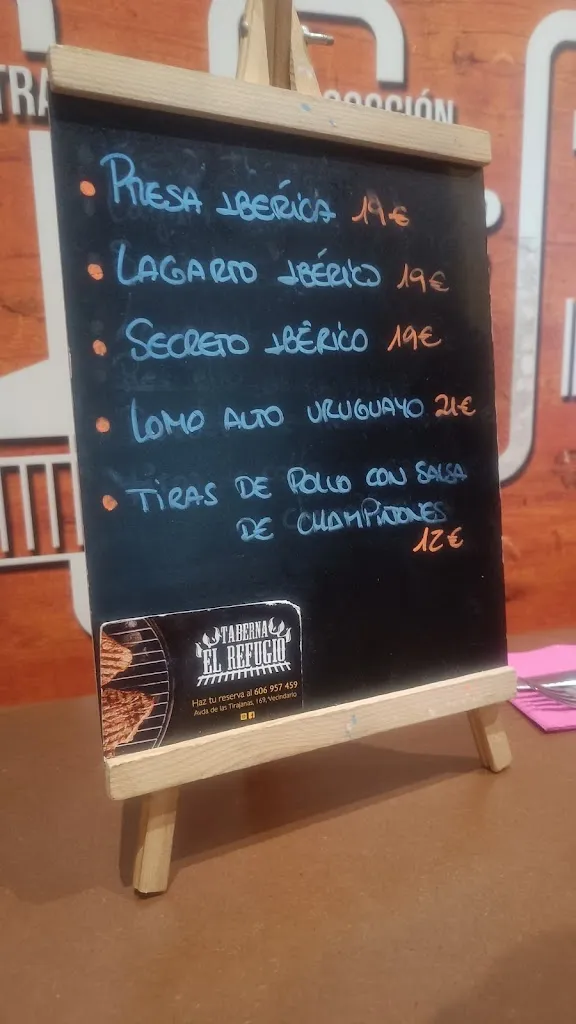 TRA
COCCIÓN
• PRESA IBÉRICA 19€
• LAGARTO IBÉRICO 19€
• SECRETO IBÉRICO 19€
• LOMO ALTO URUGUAYO 21€
• TIRAS DE POLLO CON SALSA
DE CHAMPIÑONES
12€
TABERNA
EL REFUGIO
Haz tu reserva al 606 957 459
Avda de las Tirajanas, 169, Vecindario